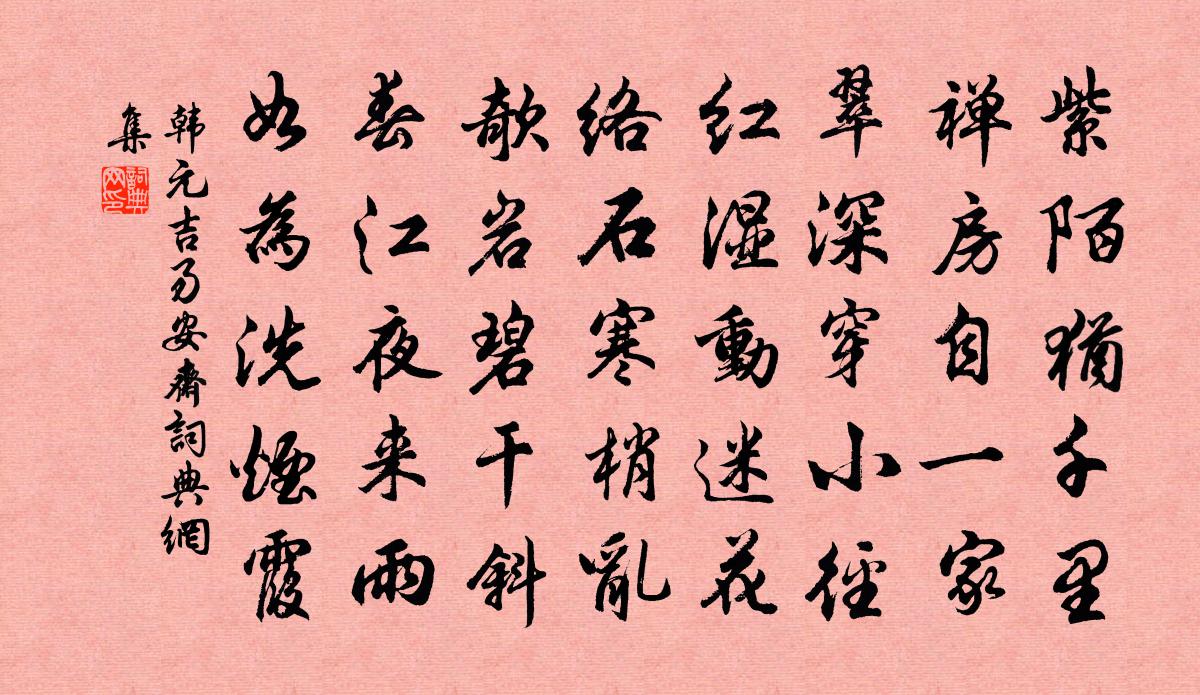 紫陌猶千里
禅房自一家
翠深穿小徑
红湿動迷花
络石寒梢亂
欹岩碧干斜
春江夜来雨
如為洗煙霞
韩元吉易安齋詞典網
集
詞典网印